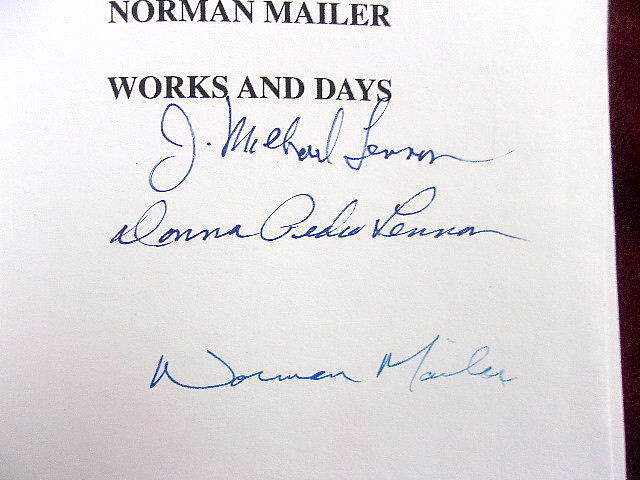 NORMAN MAILER
WORKS AND DAYS
J. Michael Lennon
Donna Pedro Lennon
Norman Mailer